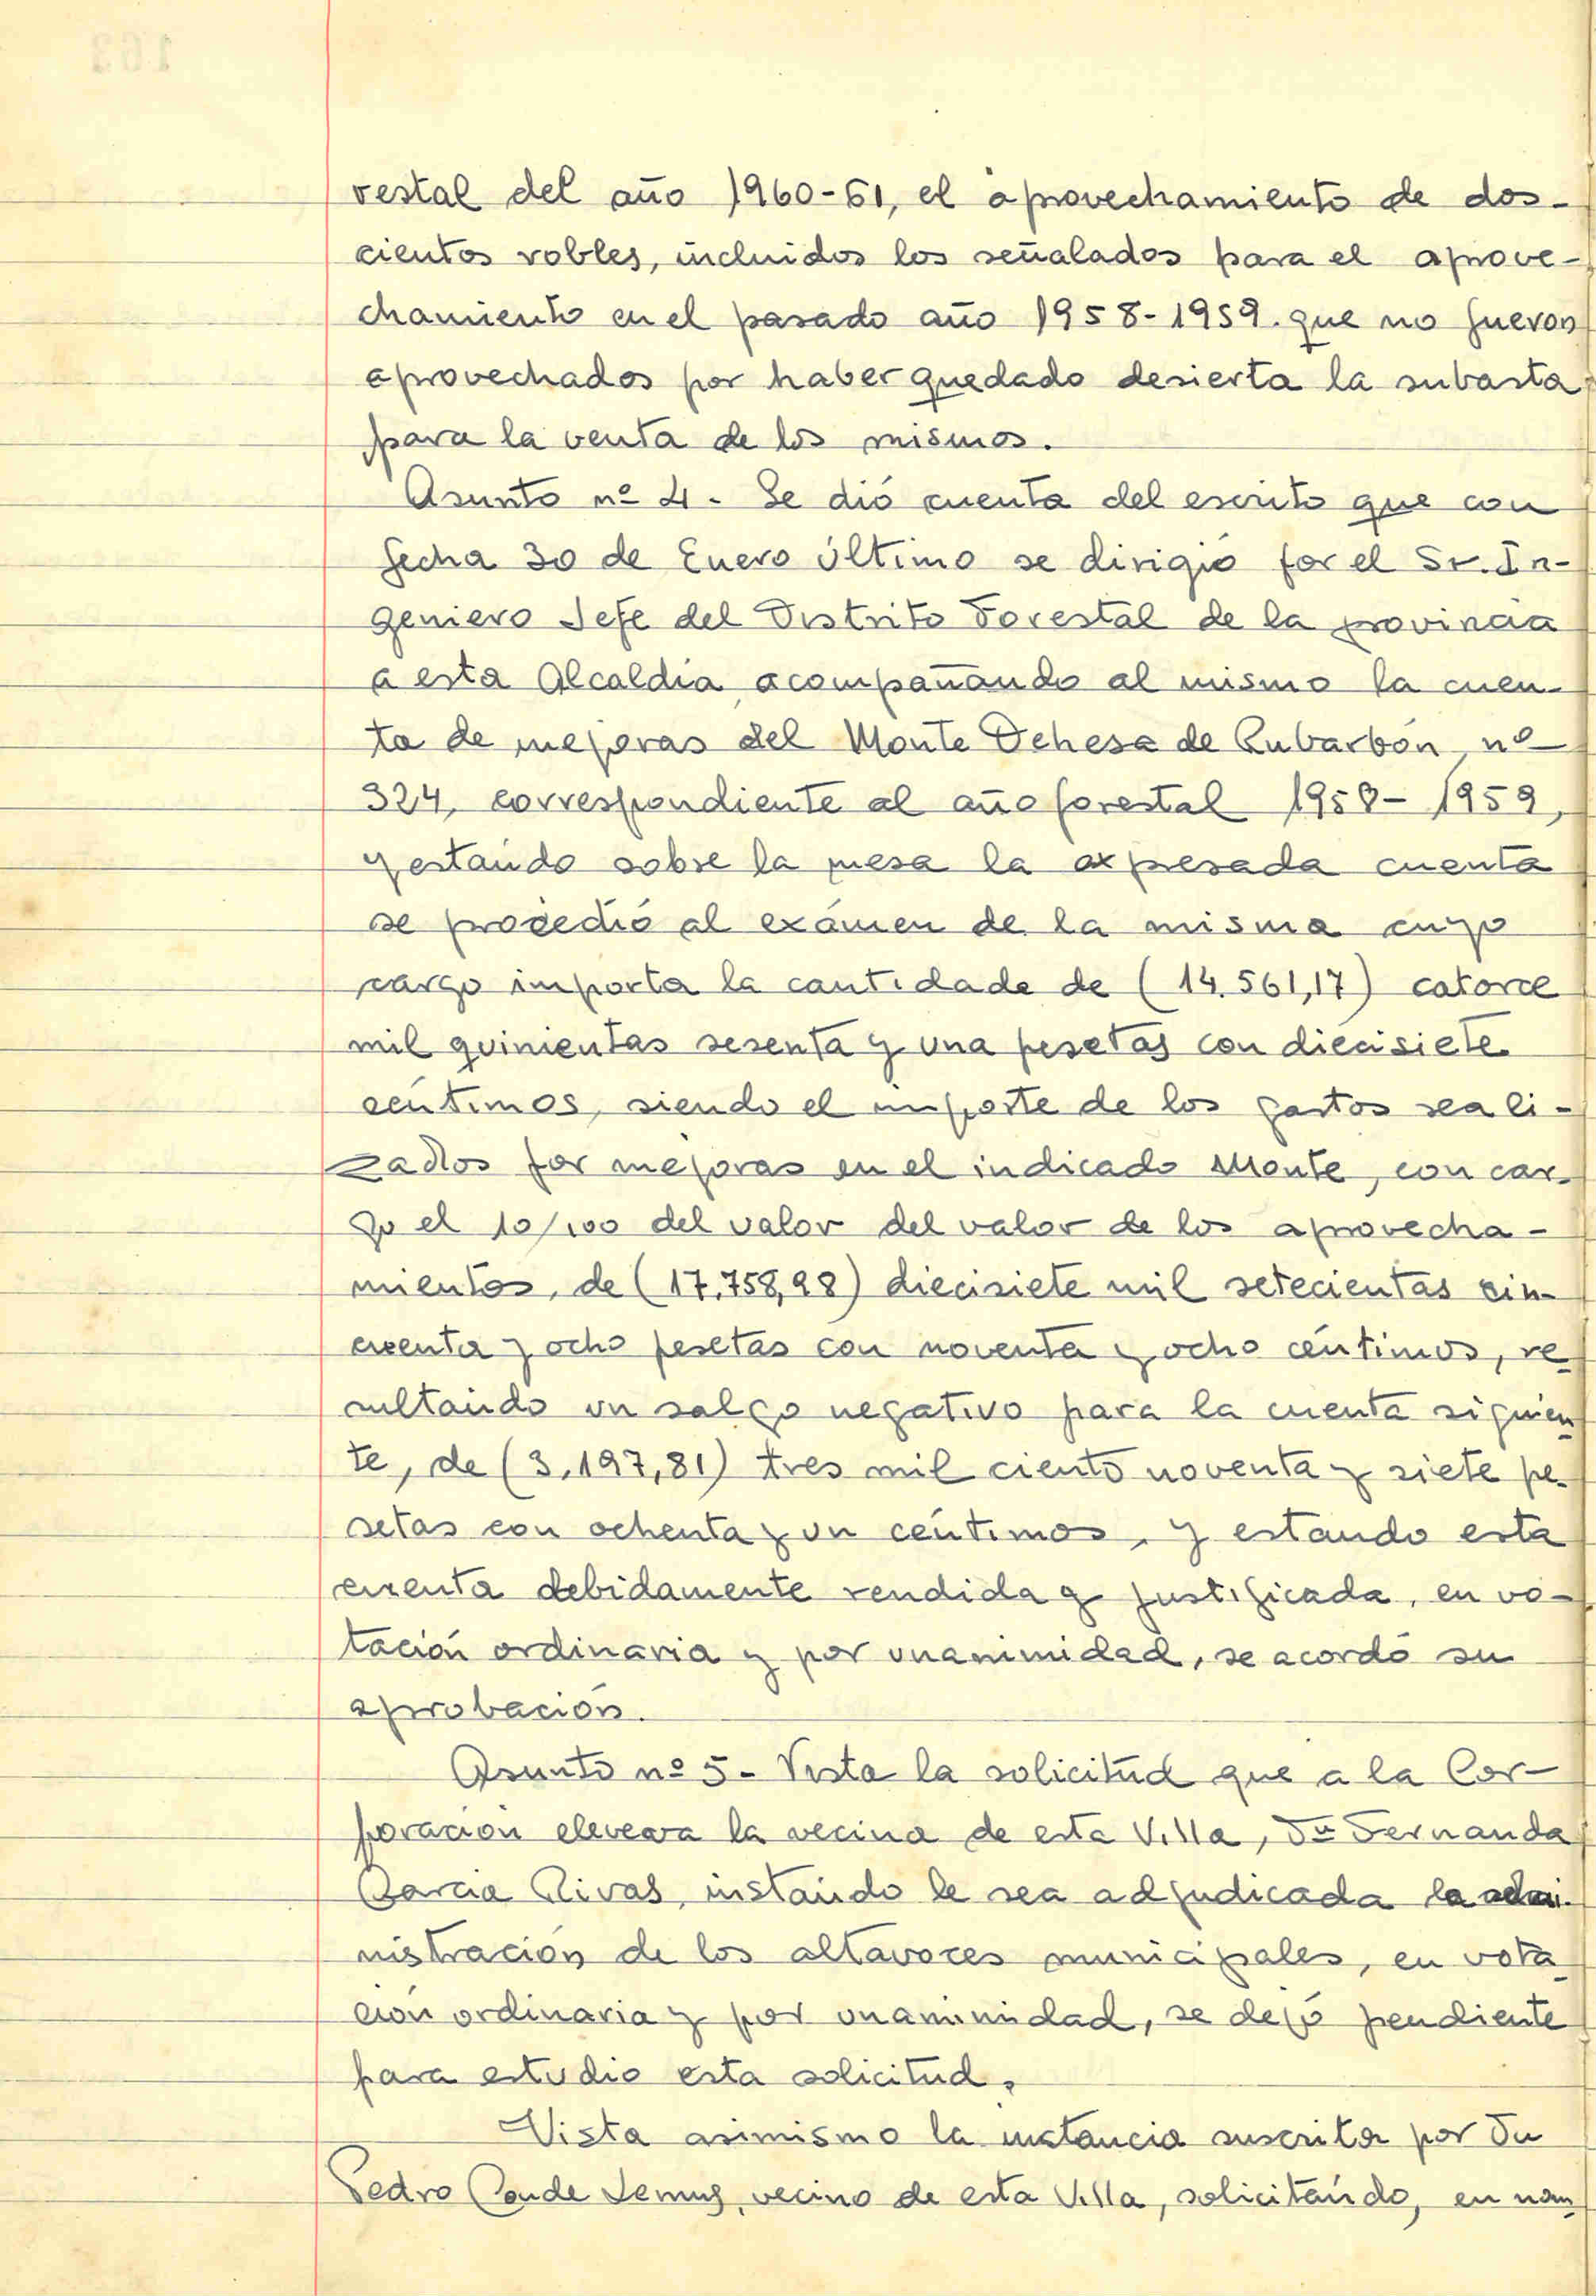 restal del año 1960-61, el aprovechamiento de dos-
cientos robles, incluidos los señalados para el aprove-
chamiento en el pasado año 1958-1959. que no fueron
aprovechados por haber quedado desierta la subasta
para la venta de los mismos.
Asunto nº 4 - Se dió cuenta del escrito que con
fecha 30 de Enero último se dirigió por el Sr. In-
geniero Jefe del Distrito Forestal de la provincia
a esta Alcaldía, acompañando al mismo la cuen-
ta de mejoras del Monte Dehesa de Rubarbón, nº
324, correspondiente al año forestal 1958-1959,
y estando sobre la mesa la expresada cuenta
se procedió al exámen de la misma cuyo
cargo importa la cantidade de (14.561,17) catorce
mil quinientas sesenta y una pesetas con diecisiete
céntimos, siendo el importe de los gastos reali-
zados por mejoras en el indicado Monte, con car-
go el 10/100 del valor del valor de los aprovecha-
mientos, de (17.758,98) diecisiete mil setecientas cin-
cuenta y ocho pesetas con noventa y ocho céntimos, re
sultando un salgo negativo para la cuenta siguien
te, de (3.197,81) tres mil ciento noventa y siete pe-
setas con ochenta y un céntimos, y estando esta
cuenta debidamente rendida y justificada, en vo-
tación ordinaria y por unanimidad, se acordó su
aprobación.
Asunto nº 5 - Vista la solicitud que a la Cor-
poración eleveva la vecina de esta Villa, Dª Fernanda
Garcia Rivas, instando le sea adjudicada la admi-
nistración de los altavoces municipales, en vota
ción ordinaria y por unanimidad, se dejó pendiente
para estudio esta solicitud.
Vista asimismo la instancia suscrita por Dn
Pedro Conde Lemus, vecino de esta Villa, solicitando, en nom